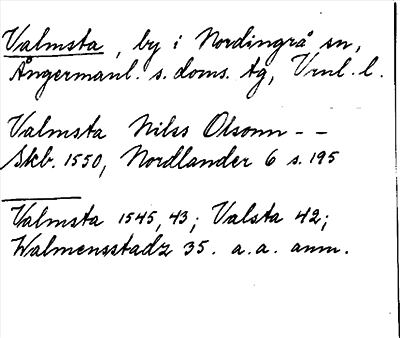 Valmsta, by i Nordingrå sn,
Ångermanl. s. doms. tg, Vrnl. l.
Valmsta Nilss Olsonn - -
Skb. 1550, Nordlander 6 s. 195
Valmsta 1545, 43; Valsta 42;
Walmensstadz 35. a. a. anm.